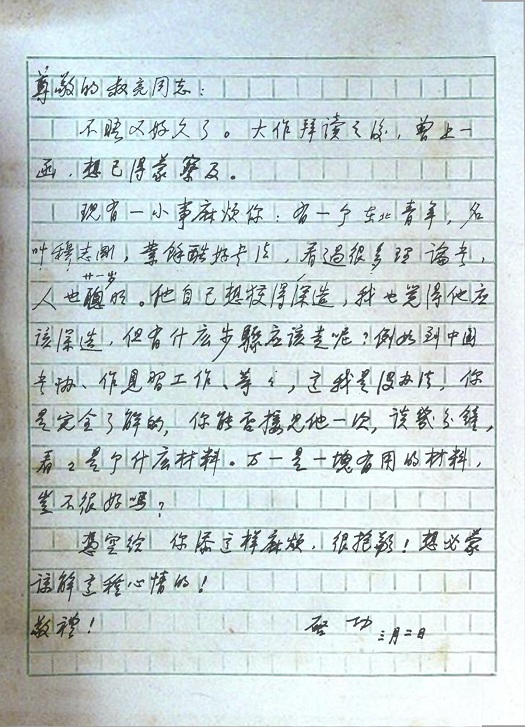 尊敬的叔亮同志：
不晤又好久了。大作拜读之後，曾上一
函，想已得蒙察及。
现有一小事麻烦你：有一个东北青年，名
叫穆志刚，業餘酷好书法，看過很多理論书，
廿一岁
人也聰明。他自己想獲得深造，我也覺得他应
该深造，但有什么步驟应该走呢？例如到中国
书协、作見習工作、等々，这我是没办法，你
是完全了解的，你能否接見他一次，谈幾分鐘，
看々是个什么材料。万一是一塊有用的材料，
豈不很好吗？
憑空给 你添这样麻烦，很抱歉！想必蒙
谅解这種心情的！
敬禮！
启功 三月二日